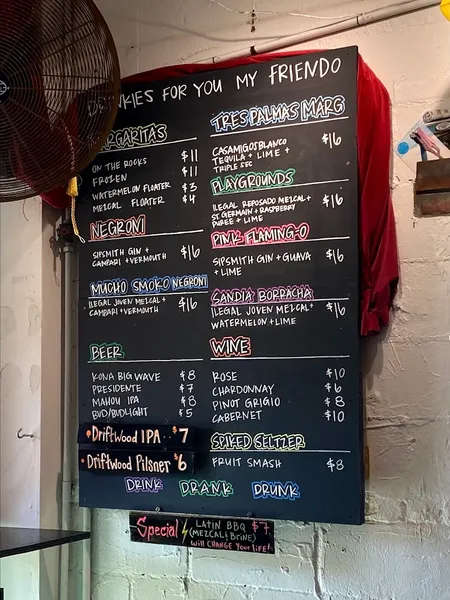 DRINKIES FOR YOU MY FRIENDO
MARGARITAS
ON THE ROCKS $11
FROZEN $11
WATERMELON FLOATER $3
MEZCAL FLOATER $4
NEGRONI
SIPSMITH GIN + $16
CAMPARI + VERMOUTH
MUCHO SMOKO NEGRONI
ILEGAL JOVEN MEZCAL + $16
CAMPARI + VERMOUTH
BEER
KONA BIG WAVE $8
PRESIDENTE $7
MAHOU IPA $8
BUD/BUDLIGHT $5
Driftwood IPA $7
Driftwood Pilsner $6
TRES PALMAS MARG
CASAMIGOS BLANCO $16
TEQUILA + LIME +
TRIPLE SEC
PLAYGROUNDS
ILEGAL REPOSADO MEZCAL + $16
ST GERMAIN + RASPBERRY
PUREE + LIME
PINK FLAMING-O
SIPSMITH GIN + GUAVA $16
+ LIME
SANDIA BORRACHA
ILEGAL JOVEN MEZCAL + $16
WATERMELON + LIME
WINE
ROSE $10
CHARDONNAY $6
PINOT GRIGIO $8
CABERNET $10
SPIKED SELTZER
FRUIT SMASH $8
DRINK DRANK DRUNK
Special LATIN BBQ $7
(MEZCAL & BRINE)
Will CHANGE Your LIFE!